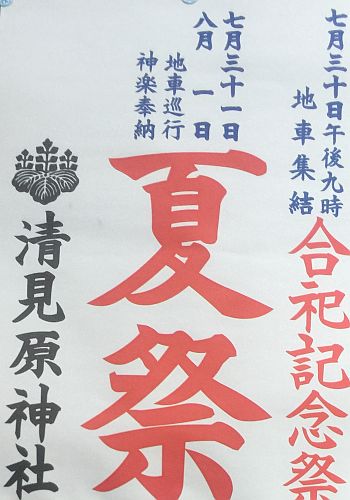 七月三十日午後九時
地車集結
合祀記念祭
七月三十一日
八月一日
地車巡行
神楽奉納
夏祭
清見原神社